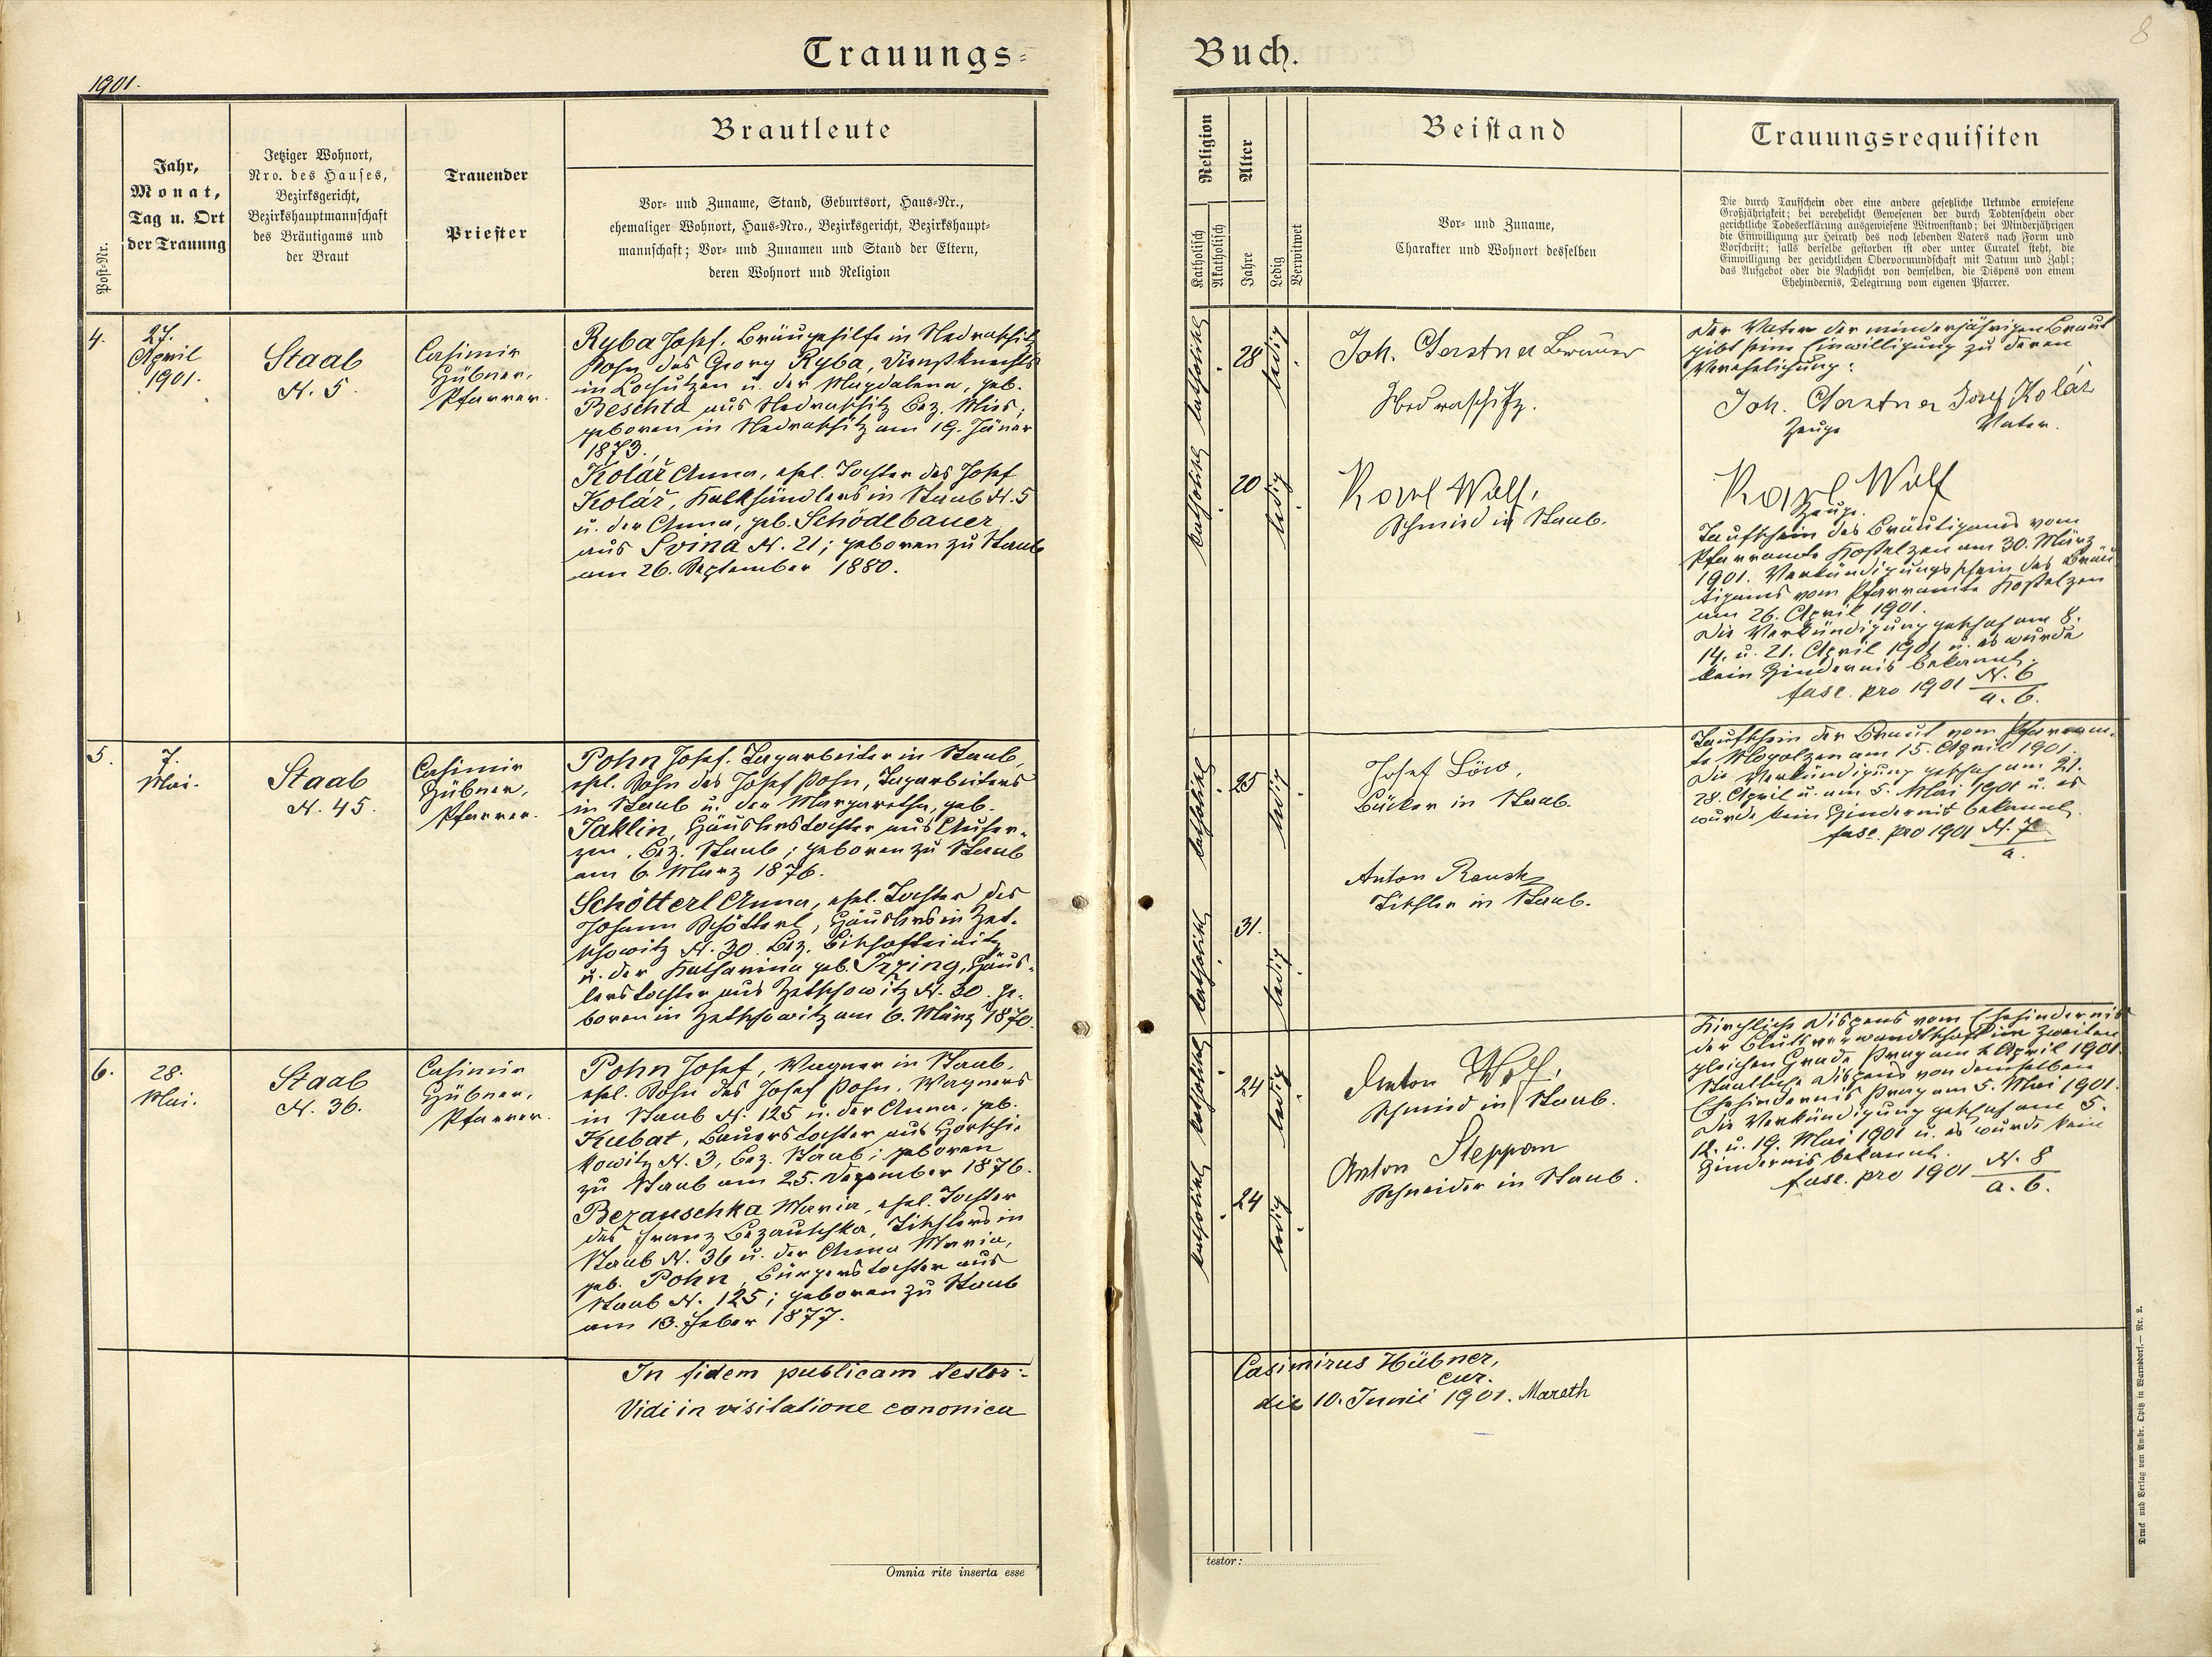 Trauungs-
1901.
Post-Nr.
Jahr,
Monat,
Tag u. Ort
der Trauung
Jetziger Wohnort,
Nro. des Hauses,
Bezirksgericht,
Bezirkshauptmannschaft
des Bräutigams und
der Braut
Trauender
Priester
Brautleute
Vor- und Zuname, Stand, Geburtsort, Haus-Nr.,
ehemaliger Wohnort, Haus-Nro., Bezirksgericht, Bezirkshaupt-
mannschaft; Vor- und Zunamen und Stand der Eltern,
deren Wohnort und Religion
4.
27.
April
1901.
Staab
N. 5.
Casimir
Hübner,
Pfarrer.
Ryba Josef, Bräugehilfe in Nedraschitz
Sohn des Georg Ryba, Dienstknechts
in Lochutzen u. der Magdalena, geb.
Beschta aus Nedraschitz Bez. Mies;
geboren in Nedraschitz am 19. Jäner
1873.
Kolář Anna, ehel. Tochter des Josef
Kolář, Kalkhändlers in Staab N. 5
u. der Anna, geb. Schödlbauer
aus Svina N. 21; geboren zu Staab
am 26. September 1880.
5.
7.
Mai.
Staab
N. 45.
Casimir
Hübner,
Pfarrer.
Pohn Josef, Tagarbeiter in Staab,
ehel. Sohn des Josef Pohn, Tagarbeiters
in Staab u. der Margaretha, geb.
Jaklin, Häuslerstochter aus Auher-
zen, Bez. Staab; geboren zu Staab
am 6. März 1876.
Schötterl Anna, ehel. Tochter des
Johann Schötterl, Häuslers in Zet-
schowitz N. 30 Bez. Bischofteinitz
u. der Katharina geb. Irzing, Häus-
lerstochter aus Zetschowitz N. 30. ge-
boren in Zetschowitz am 6. März 1870.
6.
28.
Mai.
Staab
N. 36.
Casimir
Hübner,
Pfarrer.
Pohn Josef, Wagner in Staab,
ehel. Sohn des Josef Pohn, Wagners
in Staab N. 125 u. der Anna, geb.
Kubat, Bauerstochter aus Horschi-
kowitz N. 3, Bez. Staab; geboren
zu Staab am 25. Dezember 1876.
Bezauschka Maria, ehel. Tochter
des Franz Bezauschka, Tischlers in
Staab N. 36 u. der Anna Maria,
geb. Pohn, Bürgerstochter aus
Staab N. 125; geboren zu Staab
am 13. Feber 1877.
In fidem publicam testor:
Vidi in visitatione canonica
Omnia rite inserta esse
Buch.
8
Religion
Katholisch
Akatholisch
Alter
Jahre
Ledig
Verwitwet
Beistand
Vor- und Zuname,
Charakter und Wohnort desselben
Trauungsrequisiten
Die durch Taufschein oder eine andere gesetzliche Urkunde erwiesene
Großjährigkeit; bei verehelicht Gewesenen der durch Todtenschein oder
gerichtliche Todeserklärung ausgewiesene Witwenstand; bei Minderjährigen
die Einwilligung zur Heirath des noch lebenden Vaters nach Form und
Vorschrift; falls derselbe gestorben ist oder unter Curatel steht, die
Einwilligung der gerichtlichen Obervormundschaft mit Datum und Zahl;
das Aufgebot oder die Nachsicht von demselben, die Dispens von einem
Ehehindernis, Delegirung vom eigenen Pfarrer.
katholisch
28
ledig
Joh. Gerstner
Nedraschitz.
katholisch
20
ledig
Karl Wolf,
Schmied in Staab.
Der Vater der minderjährigen Braut
gibt seine Einwilligung zu deren
Verehelichung:
Joh. Gerstner Josef Kolář
Zeuge Vater.
Karl Wolf
Zeuge.
Taufschein des Bräutigams vom
Pfarramte Kostelzen am 30. März
1901. Verkündigungsschein des Bräu-
tigams vom Pfarramte Kostelzen
am 26. April 1901.
Die Verkündigung geschah am 8.
14. u. 21. April 1901 u. es wurde
kein Hindernis bekannt.
fasc. pro 1901 N. 6
a. b.
katholisch
25
ledig
Josef Löw,
Bäcker in Staab.
katholisch
31.
ledig
Anton Rausch
Tischler in Staab.
Taufschein der Braut vom Pfarram-
te Mogolzen am 15. April 1901.
Die Verkündigung geschah am 21.
28. April u. am 5. Mai 1901 u. es
wurde kein Hindernis bekannt.
fasc. pro 1901 N. 7
a.
katholisch
24
ledig
Anton Wolf,
Schmied in Staab.
katholisch
24
ledig
Anton Steppan
Schneider in Staab.
Kirchliche Dispens vom Ehehindernis
der Blutsverwandtschaft im zweiten
gleichen Grade Prag am 2. April 1901.
Staatliche Dispens von demselben
Ehehindernis Prag am 5. Mai 1901.
Die Verkündigung geschah am 5.
12. u. 19. Mai 1901 u. es wurde kein
Hindernis bekannt.
fasc. pro 1901 N. 8
a. b.
Casimirus Hübner,
cur.
die 10. Junii 1901. Mareth
testor:
Druck und Verlag von Ambr. Opitz in Warnsdorf. — Nr. 2.